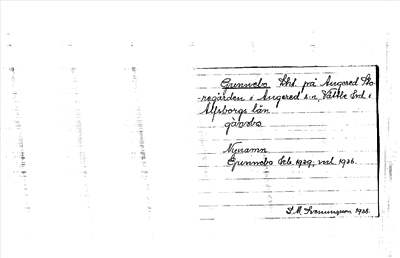 Gunnebo Lhl på Angered Sto-
regården i Angered s:n, Vättle hd i
Älfsborgs län
gùnebo
Nynamn.
Gunnebo Seb. 1929, val. 1936.
1938.